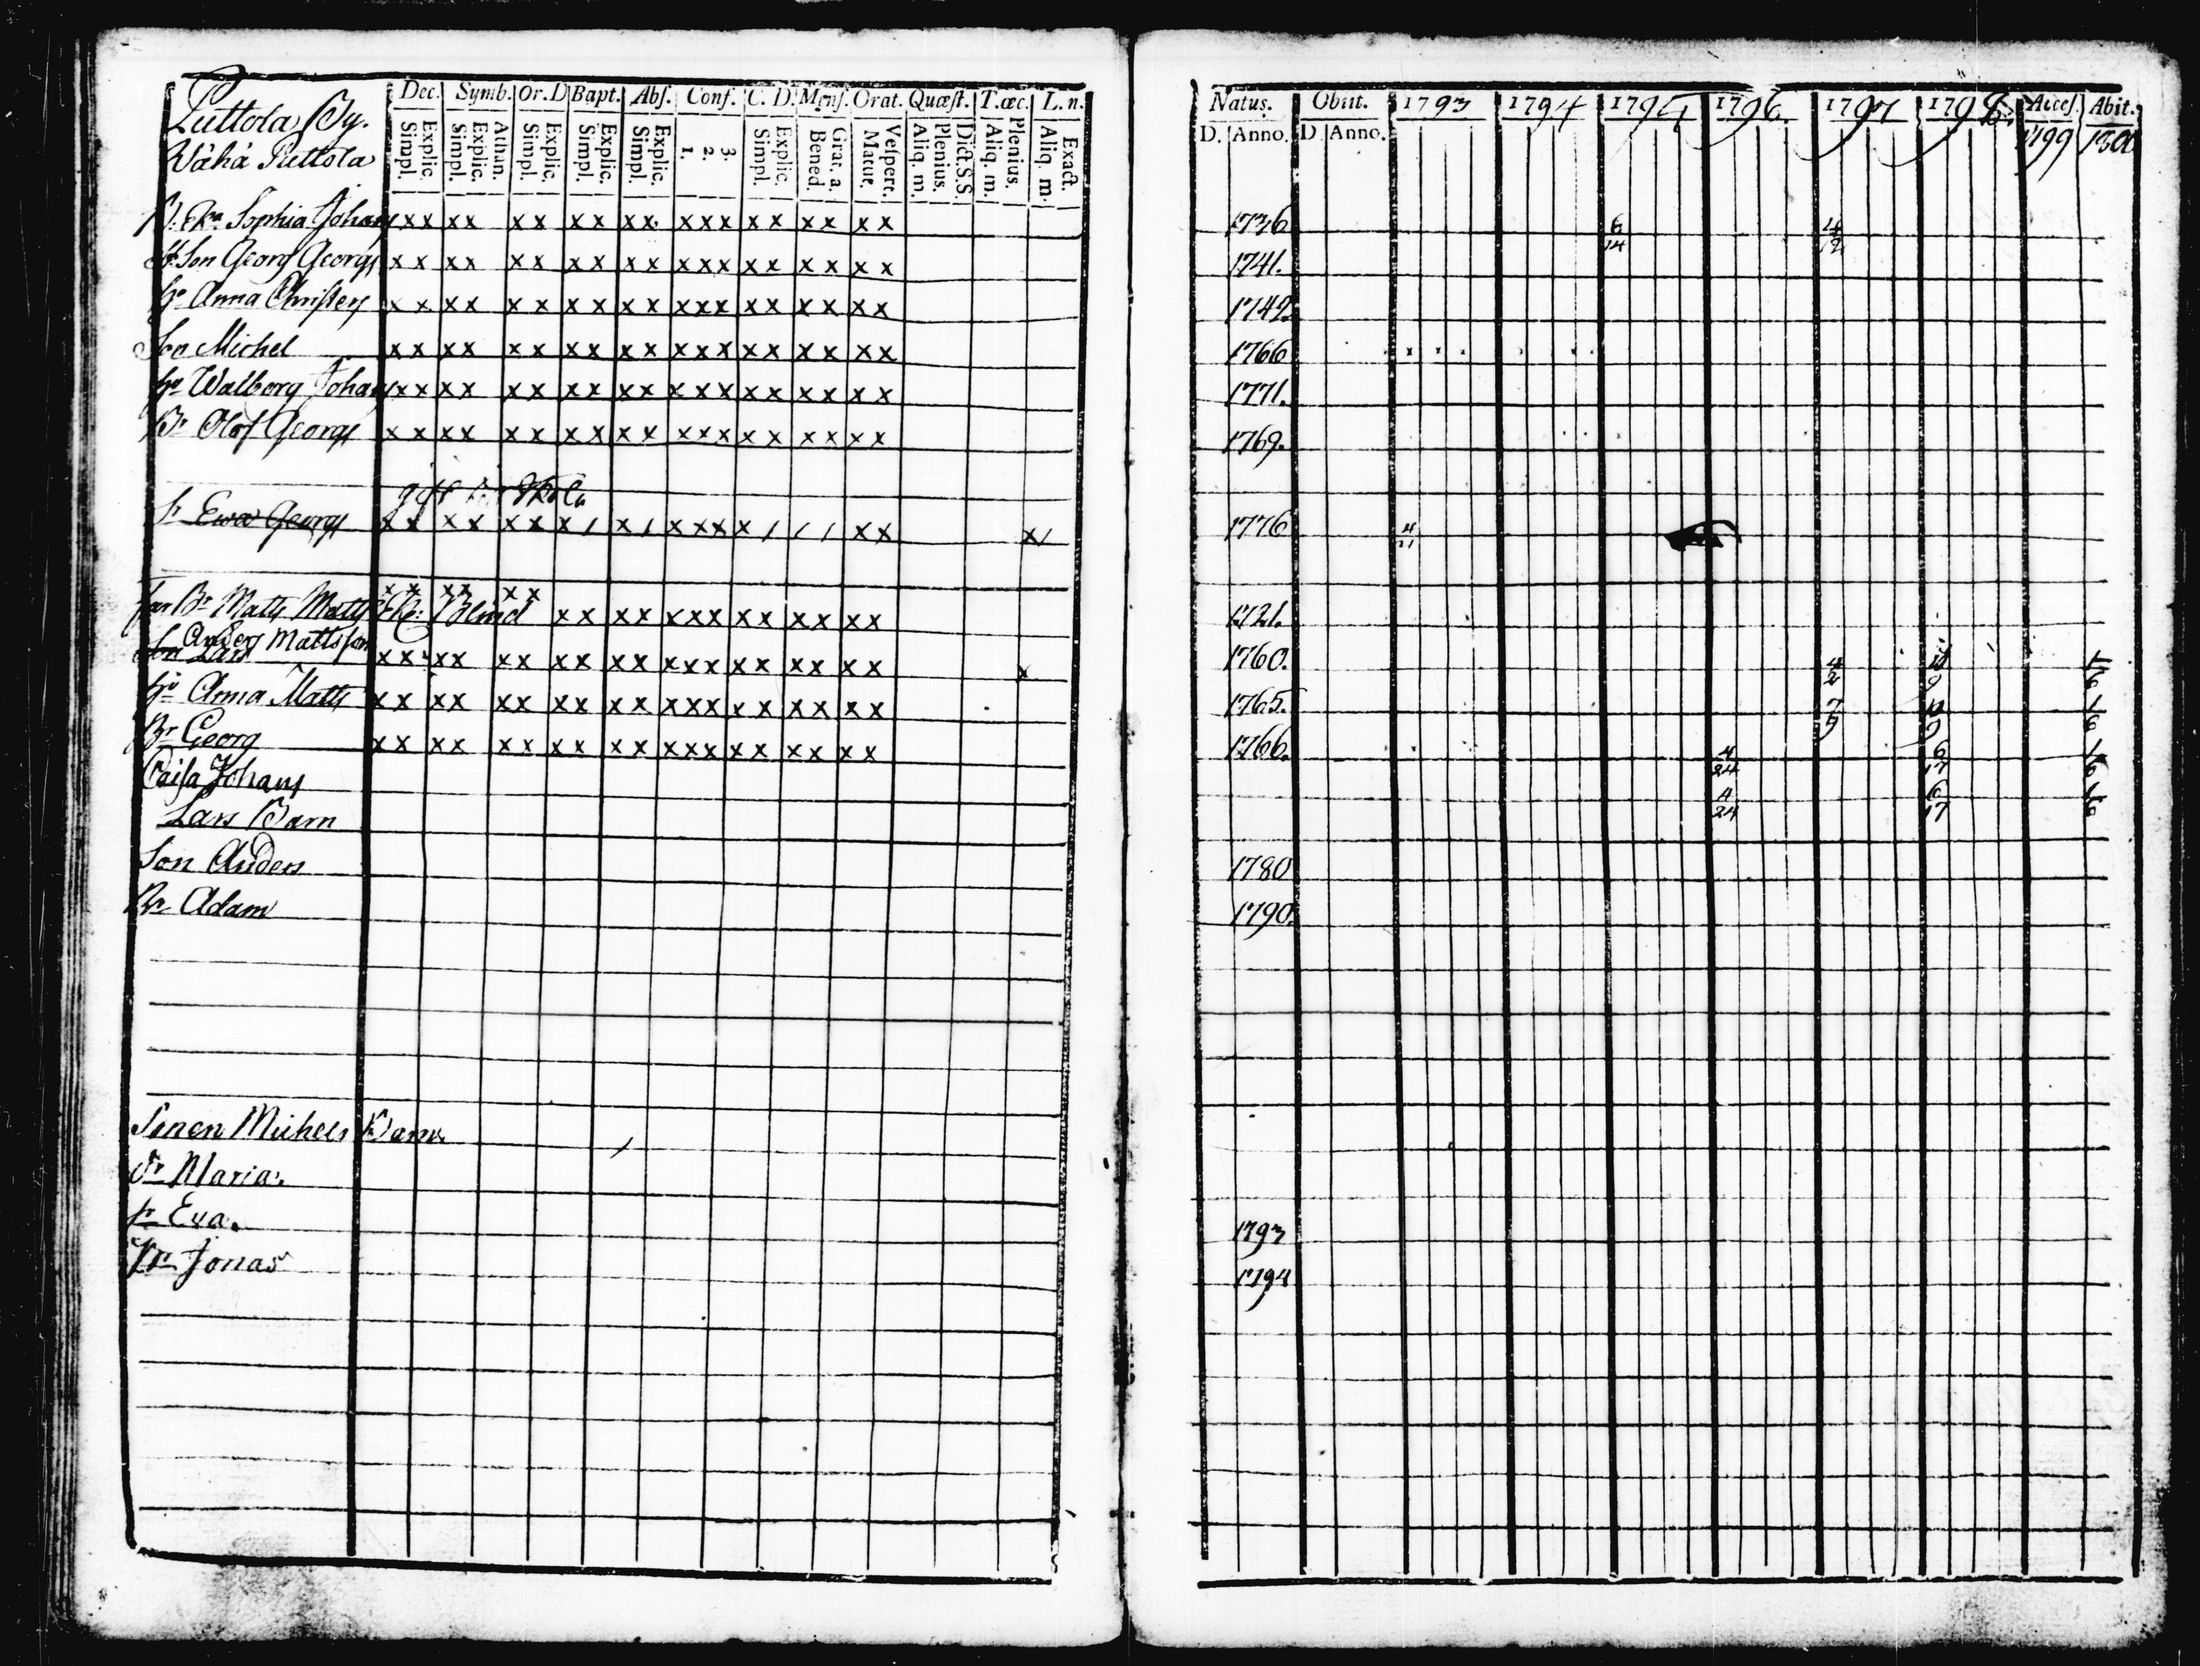 Puttola By.
Wähä Puttola
Dec. Symb. Or.D Bapt. Abs. Conf. C. D. Mens. Orat. Quæst. T.œc. L.n.
Simpl. Explic. Simpl. Explic. Athan. Simpl. Explic. Simpl. Explic. Simpl. Explic. 1. 2. 3. Simpl. Explic. Bened. Grat. a. Matut. Vespert. Aliq. m. Plenius. Dict.S.S. Aliq. m. Plenius. Aliq. m. Exact.
Sophia Johans x x x x x x x x x x x x x x x x x x x
Son Georg Georgs x x x x x x x x x x x x x x x x x x x
hu Anna Christers x x x x x x x x x x x x x x x x x x x
Son Michel x x x x x x x x x x x x x x x x x x x
hu Walborg Johans x x x x x x x x x x x x x x x x x x x
Br Olof Georgs x x x x x x x x x x x x x x x x x x x
gift
Sr Ewa Georgs x x x x x x x / x / x x x x / / / x x x /
x x x x x x
Far Br Matts Matts Blind x x x x x x x x x x x x x
Anders Mattsson
Son Lars x x x x x x x x x x x x x x x x x x x x
hu Anna Matts x x x x x x x x x x x x x x x x x x x
Br Georg x x x x x x x x x x x x x x x x x x x
Caisa Johans
Lars Barn
Son Anders
Br Adam
Sonen Michels Barn
Dr Maria.
Sr Eva.
Br Jonas
Natus. Obiit. 1793 1794 1795 1796. 1797 1798. Acces. Abit.
D. Anno. D. Anno. 1799 1800
1736 6 14
14 12
1741.
1742
1766
1771.
1769.
1776 4
21
1721.
1760. 4 11 1
2 9 6
1765. 7 11 1
9 9 6
1766. 4 6 1
24 17 6
4 6 1
24 17 6
1780
1790.
1793
1794